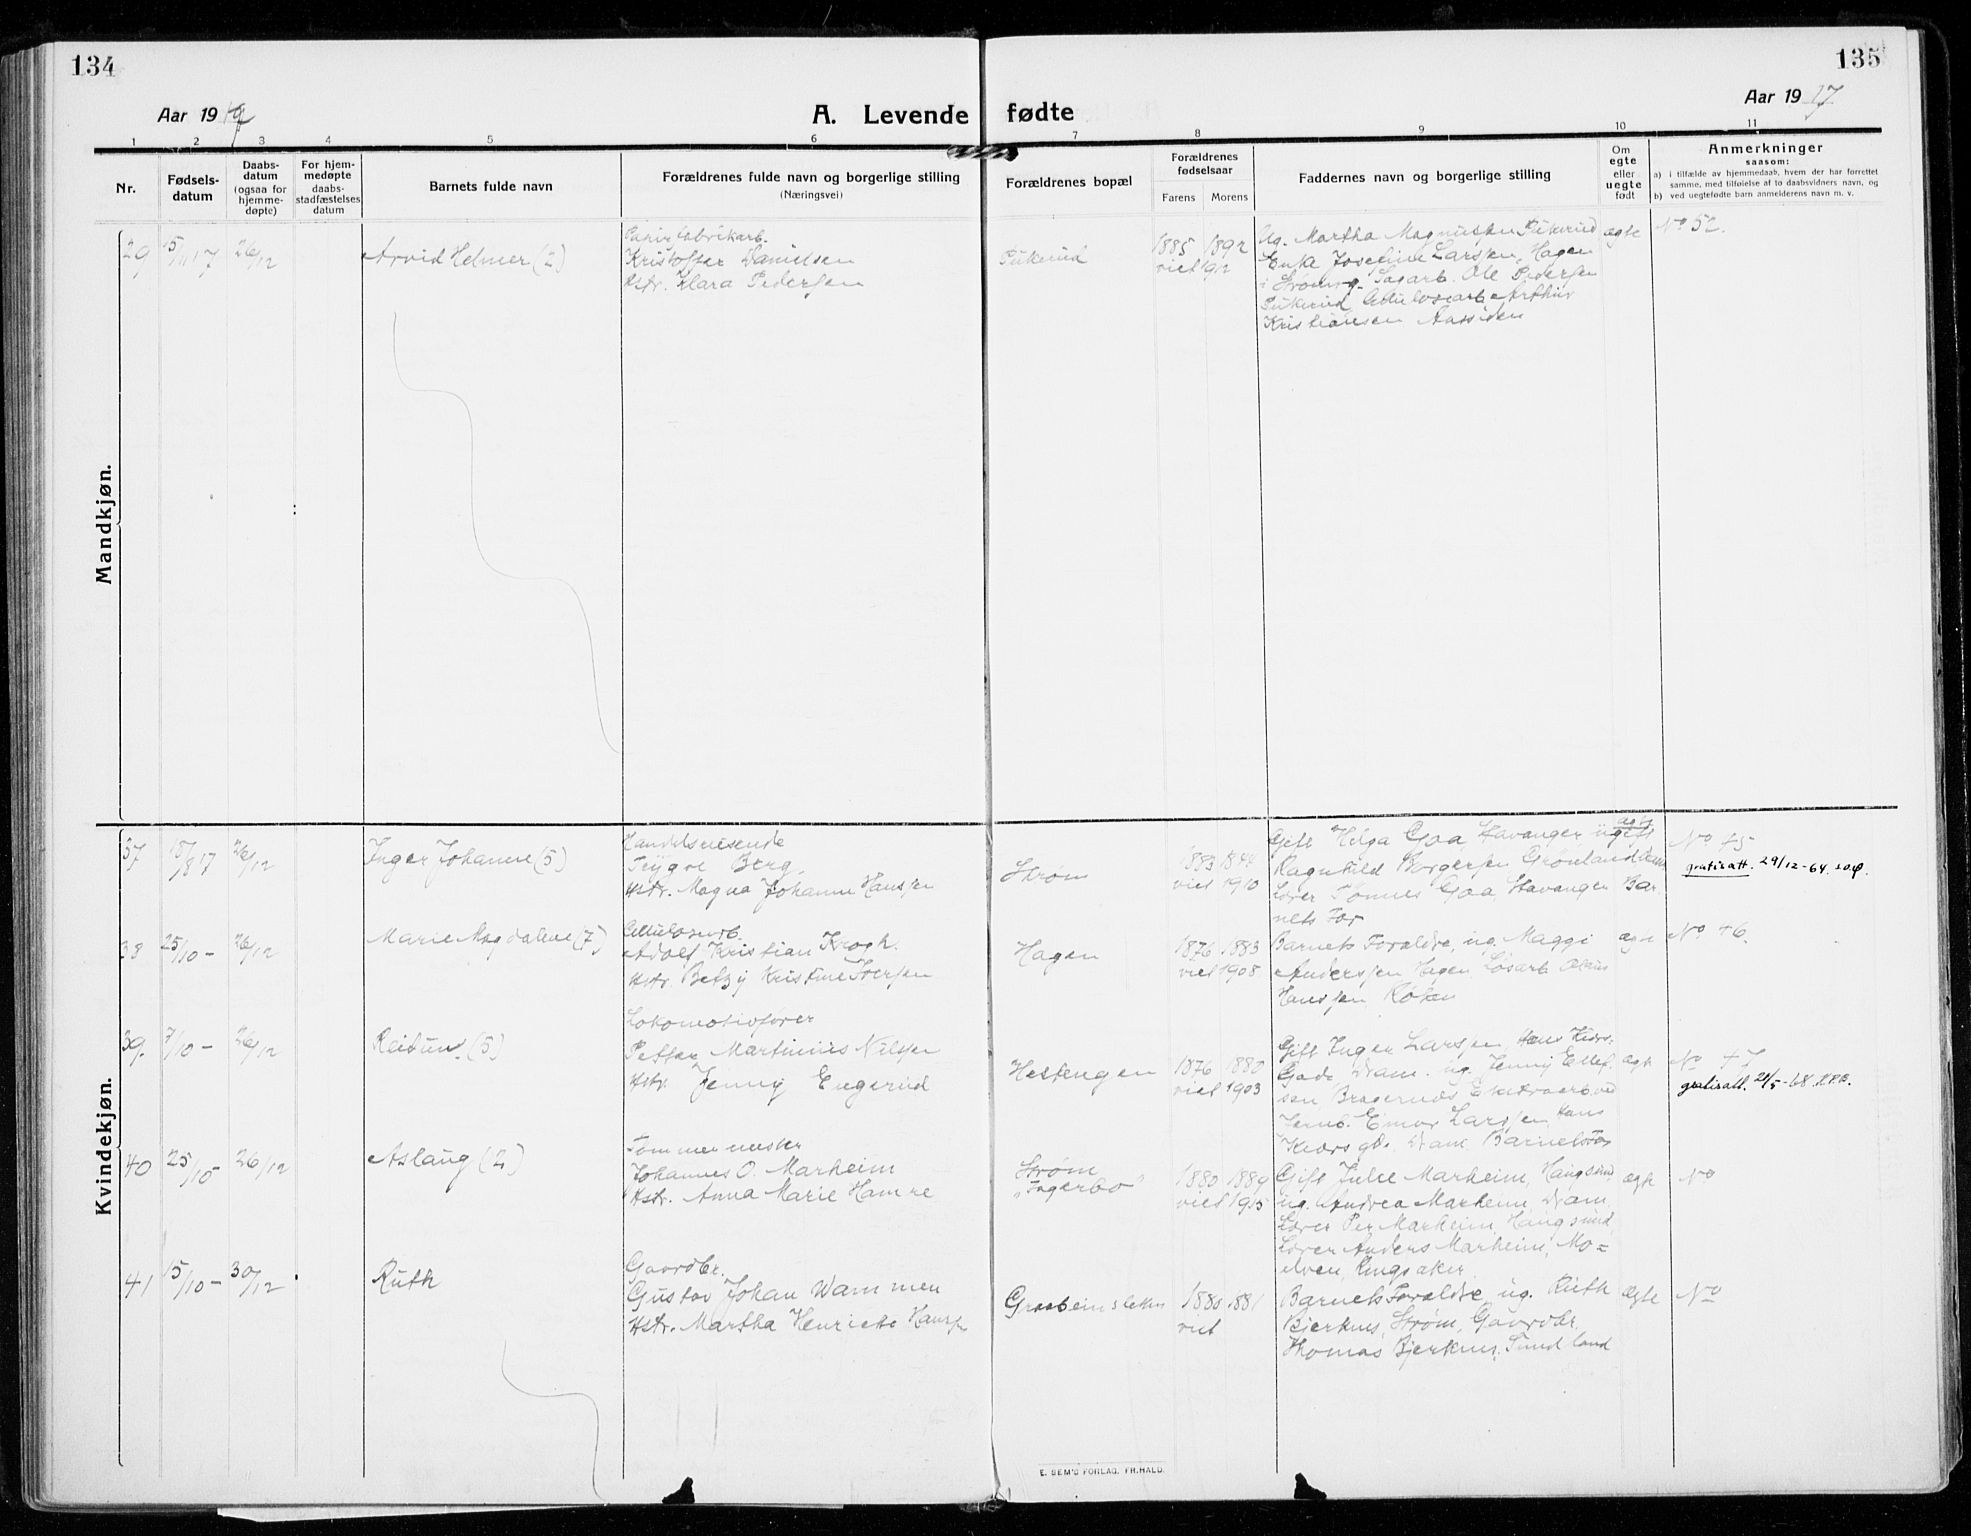 134
135
Aar 1917
A. Levende fødte
Aar 1917
1 2 3 4 5 6 7 8 9 10 11
Nr.
Fødsels-
datum
Daabs-
datum
(ogsaa for
hjemme-
døpte)
For hjem-
medøpte
daabs-
stadfæstelses
datum
Barnets fulde navn
Forældrenes fulde navn og borgerlige stilling
(Næringsvei)
Forældrenes bopæl
Forældrenes
fødselsaar
Farens Morens
Faddernes navn og borgerlige stilling
Om
egte
eller
uegte
født
Anmerkninger
saasom:
a) i tilfælde av hjemmedaab, hvem der har forrettet
samme, med tilføielse af to daabsvidners navn, og
b) ved uegtefødte barn anmelderens navn m. v.
Mandkjøn.
29 15/11 17 26/12
Arvid Helmer (2)
Papirfabrikarb.
Kristoffer Danielsen
Hstr. Klara Pedersen
Pukerud
1885 1892
viet 1912
Ug. Martha Magnussen Pukerud
Enke Josefine Larssen, Hagen
i Strømg. Sagarb. Ole Pedersen
Pukerud Cellulosearb. Arthur
Kristiansen Aassiden
egte
No 52.
Kvindekjøn.
37 18/8 17 26/12
Inger Johanne (5)
Handelsreisende
Trygve Berg.
Hstr. Magna Johanne Hanssen
Strøm
viet 1910
Gift Helga Goa Stavanger ugift
Ragnhild Borgersen Grønland Dram
Lærer Tønnes Goa, Stavanger Bar-
nets Far
egte
No 45
gratisatt. 29/12-64.
38 25/10 - 26/12
Marie Magdalene (7)
Cellulosearb.
Adolf Kristian Krogh.
Hstr. Betzy Kristine Iversen
Hagen
1876 1883
viet 1908
Barnets Foraldre, ug. Maggi
Anderssen Hagen, Løsarb.
Hanssen Røken
egte
No 46.
39. 7/10 - 26/12
Reidun (5)
Lokomotivfører
Petter Martinius Nilsen
Hstr. Jenny Engerud
Hestengen
1876 1880
viet 1903
Gift Inger Larssen, Hans Kiærs
Gade, Dram. ug. Jenny Ellef-
sen, Bragernæs Ekstraarb. ved
Jernb. Einar Larssen Hans
Kiærs gd. Dram Barnets Far
egte
No 47
gratisatt. 21/5-68.
40 25/10 - 26/12
Aslaug (2)
Tømmermester
Johannes O. Marheim
Hstr. Anna Marie Hamre
Strøm
"Fagerbo"
1880 1889
viet 1915
Gift Julie Marheim, Haugsund,
ug. Andrea Marheim, Dram,
Lærer Per Marheim, Haugsund,
Lærer Anders Marheim, Mo=
elven, Ringsaker
egte
No
41 15/10 - 30/12
Ruth
Gaardbr.
Gustav Johan Wammen
Hstr. Martha Henriette Hanssen
1880 1881
viet
Barnets Foraldre, ug. Ruth
Bjerknes, Strøm, Gaardbr.
Thomas Bjerknes, Sundland
egte
No
E. SEM'S FORLAG. FR.HALD.